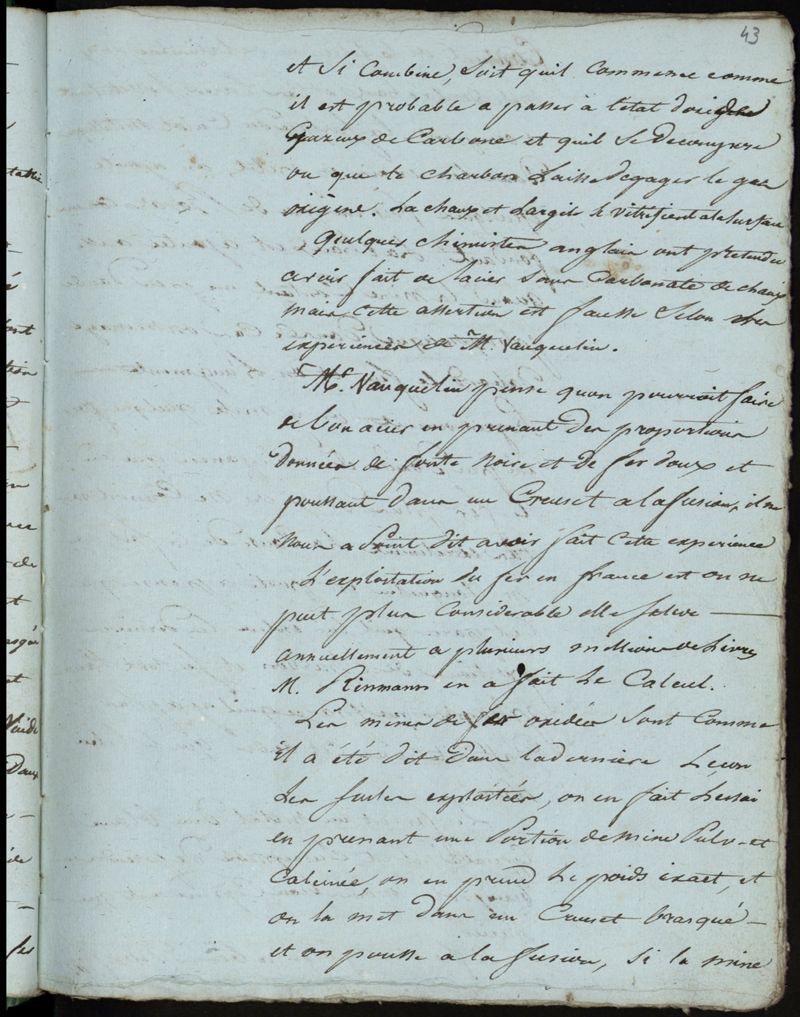 43
et si combine, soit quil commence comme
il est probable a passer à l'etat d'oxide
Gazeux de Carbone et quil se decompose
ou que le charbon laisse degager le gaz
oxigène. La chaux et Largile se vitrifient a la surface
Quelques chimistes anglais ont pretendu
avoir fait de lacier sans Carbonate de chaux
mais cette assertion est fausse selon les
experiences de M. Vauquelin.
Mr. Vauquelin pense quon pourroit faire
de bon acier en prenant des proportions
données de fonte noire et de fer doux et
poussant dans un Creuset a la fusion, il ne
nous a point dit avoir fait cette experience
L'exploitation du fer en france est on ne
peut plus Considerable elle seleve
annuellement a plusieurs millions de Livres
M. Rinmann en a fait le Calcul.
Les mines de fer oxidées sont comme
il a été dit dans la derniere Leçon
les seules exploitées, on en fait Lessai
en prenant une Portion de mine Pulv. et
Calcinée, on en prend le poids exact, et
on la met dans un Creuset brasqué
et on pousse à la fusion, si la mine